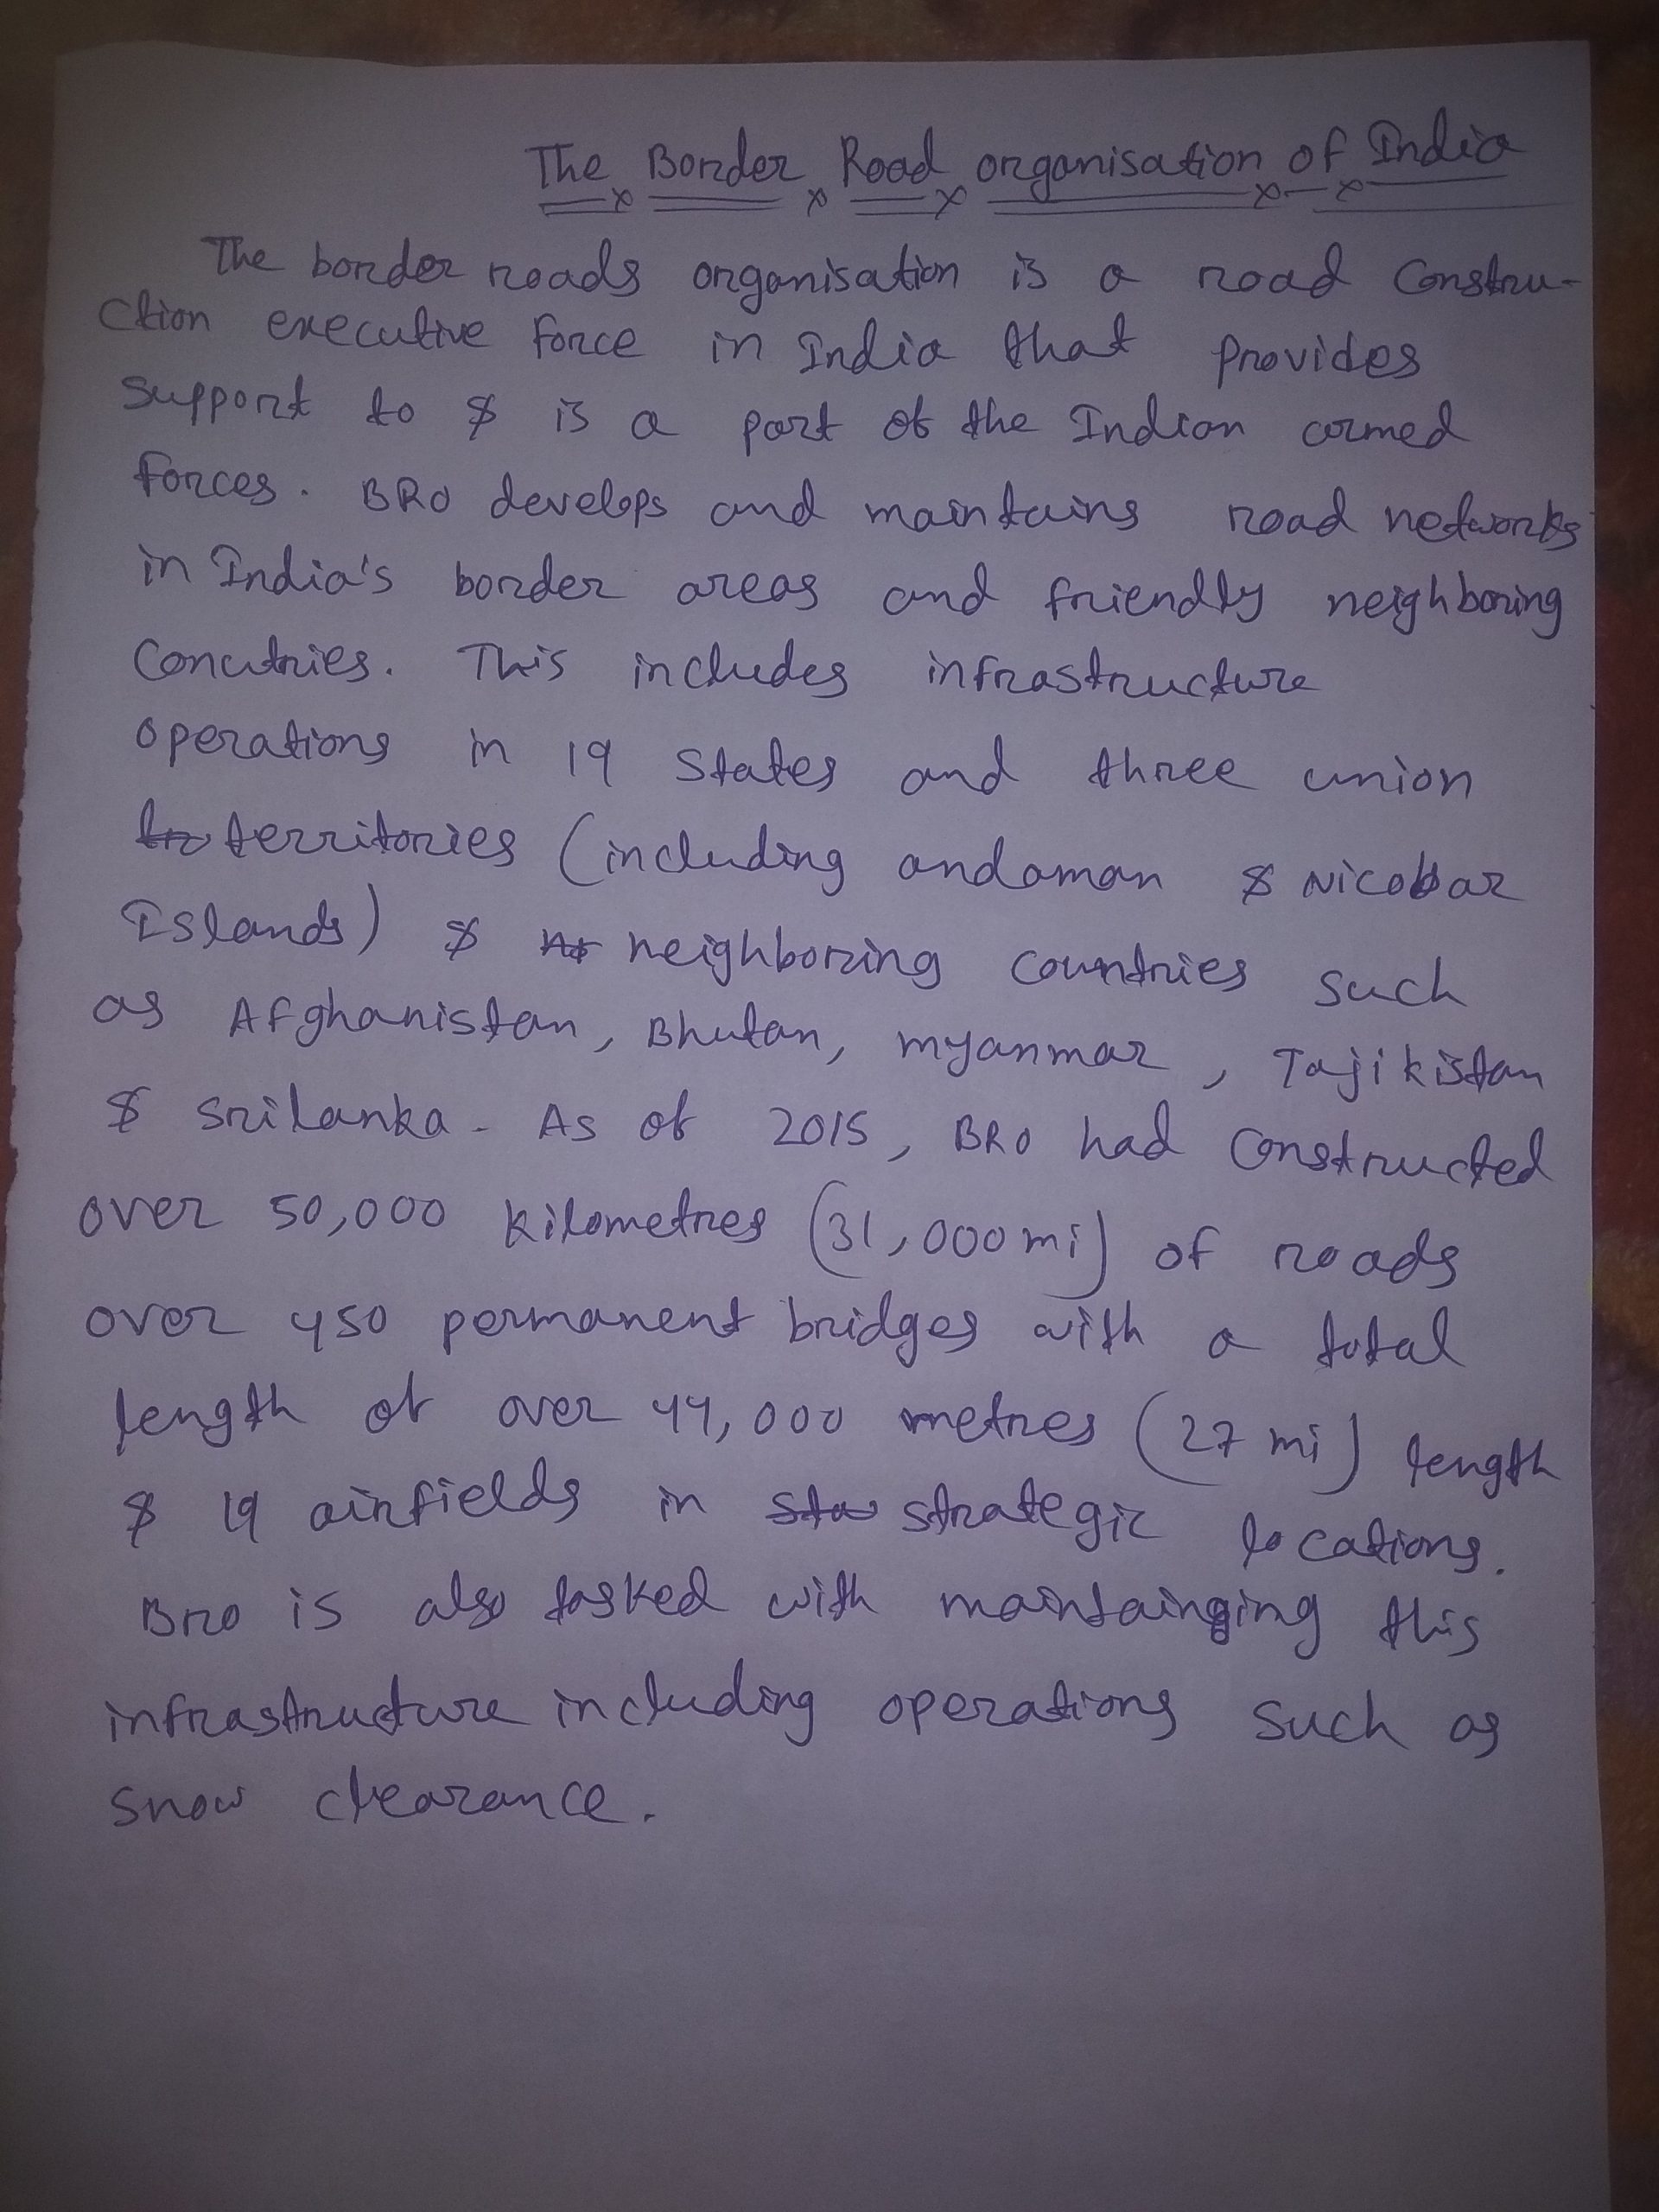 The Border Road organisation of India
The border roads organisation is a road Constru-
ction executive Force in India that provides
support to & is a part of the Indian armed
Forces. BRO develops and maintains road networks
in India's border areas and friendly neighboring
Concutries. This includes infrastructure
operations in 19 States and three union
territories (including andaman & Nicobar
Islands) & neighboring countries such
as Afghanistan, Bhutan, myanmar, Tajikistan
& Srilanka. As of 2015, BRO had Constructed
over 50,000 Kilometres (31,000 mi) of roads
over 450 permanent bridges with a total
length of over 44,000 metres (27 mi) length
& 19 airfields in strategic locations.
Bro is also tasked with maintainging this
infrastructure including operations such as
snow clearance.